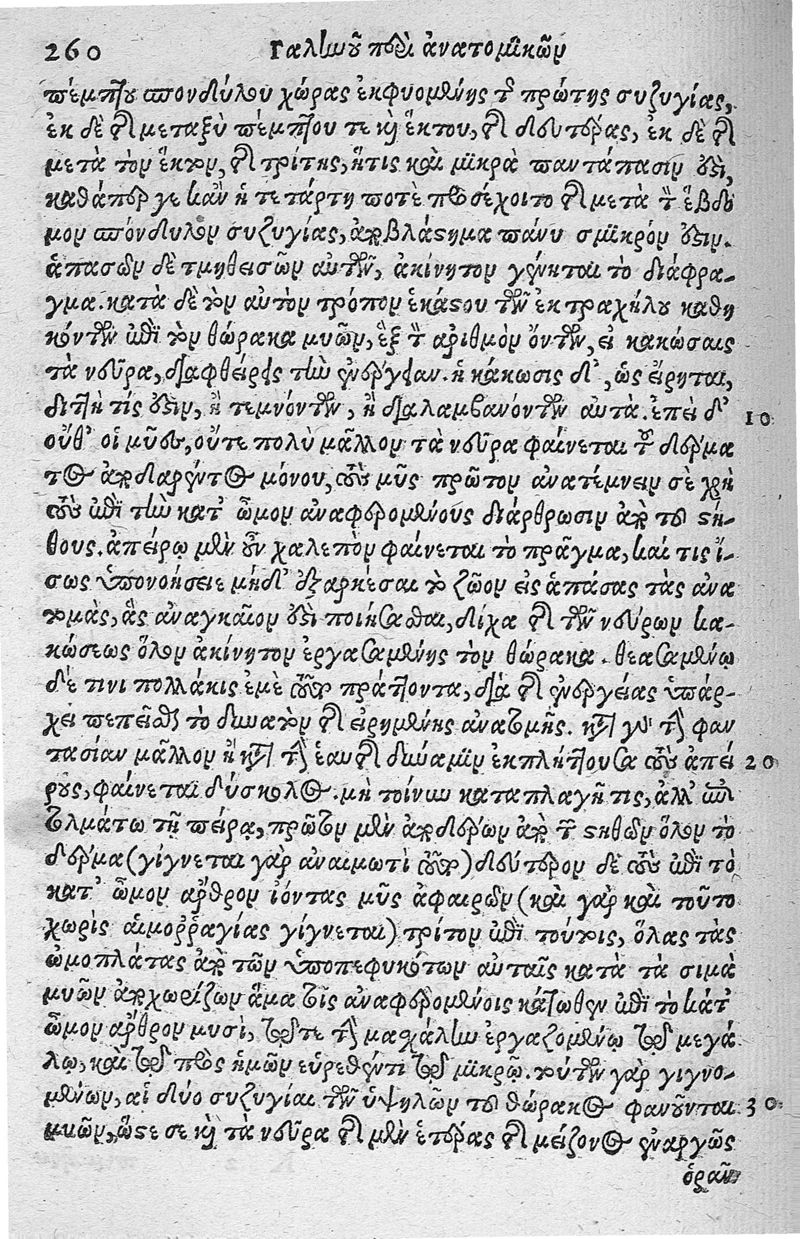 260 Γαλίωοῦ περὶ ἀνατομικῶν
πέμπτου σπονδύλου χώρας ἐκφυομένης τ πρώτης συζυγίας,
ἐκ δὲ τῆς μεταξὺ πέμπτου τε καὶ ἕκτου, τῆς δευτέρας, ἐκ δὲ τῆς
μετὰ τὸν ἕκτον, τῆς τρίτης, ἥτις καὶ μικρὰ παντάπασιν ὅτι,
καθάπερ γε κἂν ἡ τετάρτη ποτὲ προσέχοιτο τῆς μετὰ τὸν ἕβδο
μον σπόνδυλον συζυγίας, ἀποβλάστημα πάνυ σμικρόν ἐστιν.
ἁπασῶν δὲ τμηθεισῶν αὐτῶν, ἀκίνητον γίνεται τὸ διάφρα-
γμα. κατὰ δὲ τὸν αὐτὸν τρόπον ἑκάστου τῶν ἐκ τραχήλου καθη
κόντων ἐπὶ τὸν θώρακα μυῶν, ἓξ τὸν ἀριθμὸν ὄντων, εἰ κακώσαις
τὰ νεῦρα, διαφθείρεις τὴν ἐνέργειαν. ἡ κάκωσις δ', ὡς εἴρηται,
διττή τίς ἐστιν, ἢ τεμνόντων, ἢ διαλαμβανόντων αὐτά. ἐπεὶ δ' 10
οὔθ' οἱ μῦες, οὔτε πολὺ μᾶλλον τὰ νεῦρα φαίνεται τοῦ δέρμα
τος ἀποδαρέντος μόνου, τοὺς μῦς πρῶτον ἀνατέμνειν σε χρὴ
τοὺς ἐπὶ τὴν κατ' ὦμον ἀναφερομένους διάρθρωσιν ἀπὸ τοῦ στή-
θους. ἀπείρῳ μὲν οὖν χαλεπὸν φαίνεται τὸ πρᾶγμα, καί τις ἴ-
σως ὑπονοήσειε μηδ' ἐξαρκέσαι τὸ ζῶον εἰς ἁπάσας τὰς ἀνα
τομὰς, ἃς ἀναγκαῖον ὅτι ποιήσασθαι, δίχα τῆς τῶν νεύρων κα-
κώσεως ὅλον ἀκίνητον ἐργασαμένης τὸν θώρακα. θεασαμένῳ
δέ τινι πολλάκις ἐμὲ τοῦτο πράττοντα, διὰ τῆς ἐνεργείας ὑπάρ-
χει πεπεῖσθαι τὸ δυνατὸν τῆς εἰρημένης ἀνατομῆς. κατὰ γὰρ τὴν φαν
τασίαν μᾶλλον ἢ κατὰ τὴν ἑαυτῆς δύναμιν ἐκπλήττουσα τοὺς ἀπεί 20
ρους, φαίνεται δύσκολος. μὴ τοίνυν καταπλαγῇ τις, ἀλλ' ἐπι
τολμάτω τῇ πείρᾳ, πρῶτον μὲν ἀποδέρων ἀπὸ τῶν στηθῶν ὅλον τὸ
δέρμα (γίγνεται γὰρ ἀναιμωτὶ τοῦτο) δεύτερον δὲ τοὺς ἐπὶ τὸ
κατ' ὦμον ἄρθρον ἰόντας μῦς ἀφαιρῶν (καὶ γὰρ καὶ τοῦτο
χωρὶς αἱμοῤῥαγίας γίγνεται) τρίτον ἐπὶ τούτοις, ὅλας τὰς
ὠμοπλάτας ἀπὸ τῶν ὑποπεφυκότων αὐταῖς κατὰ τὰ σιμὰ
μυῶν ἀποχωρίζων ἅμα τοῖς ἀναφερομένοις κάτωθεν ἐπὶ τὸ κατ'
ὦμον ἄρθρον μυσὶ, τῷ τε τὴν μασχάλην ἐργαζομένῳ τῷ μεγά
λῳ, καὶ τῷ πρὸς ἡμῶν εὑρεθέντι τῷ μικρῷ. τούτων γὰρ γιγνο-
μένων, αἱ δύο συζυγίαι τῶν ὑψηλῶν τοῦ θώρακος φανοῦνται 30
μυῶν, ὥστε σε καὶ τὰ νεῦρα τῆς μὲν ἑτέρας τῆς μείζονος ἐναργῶς
ὁρᾶν